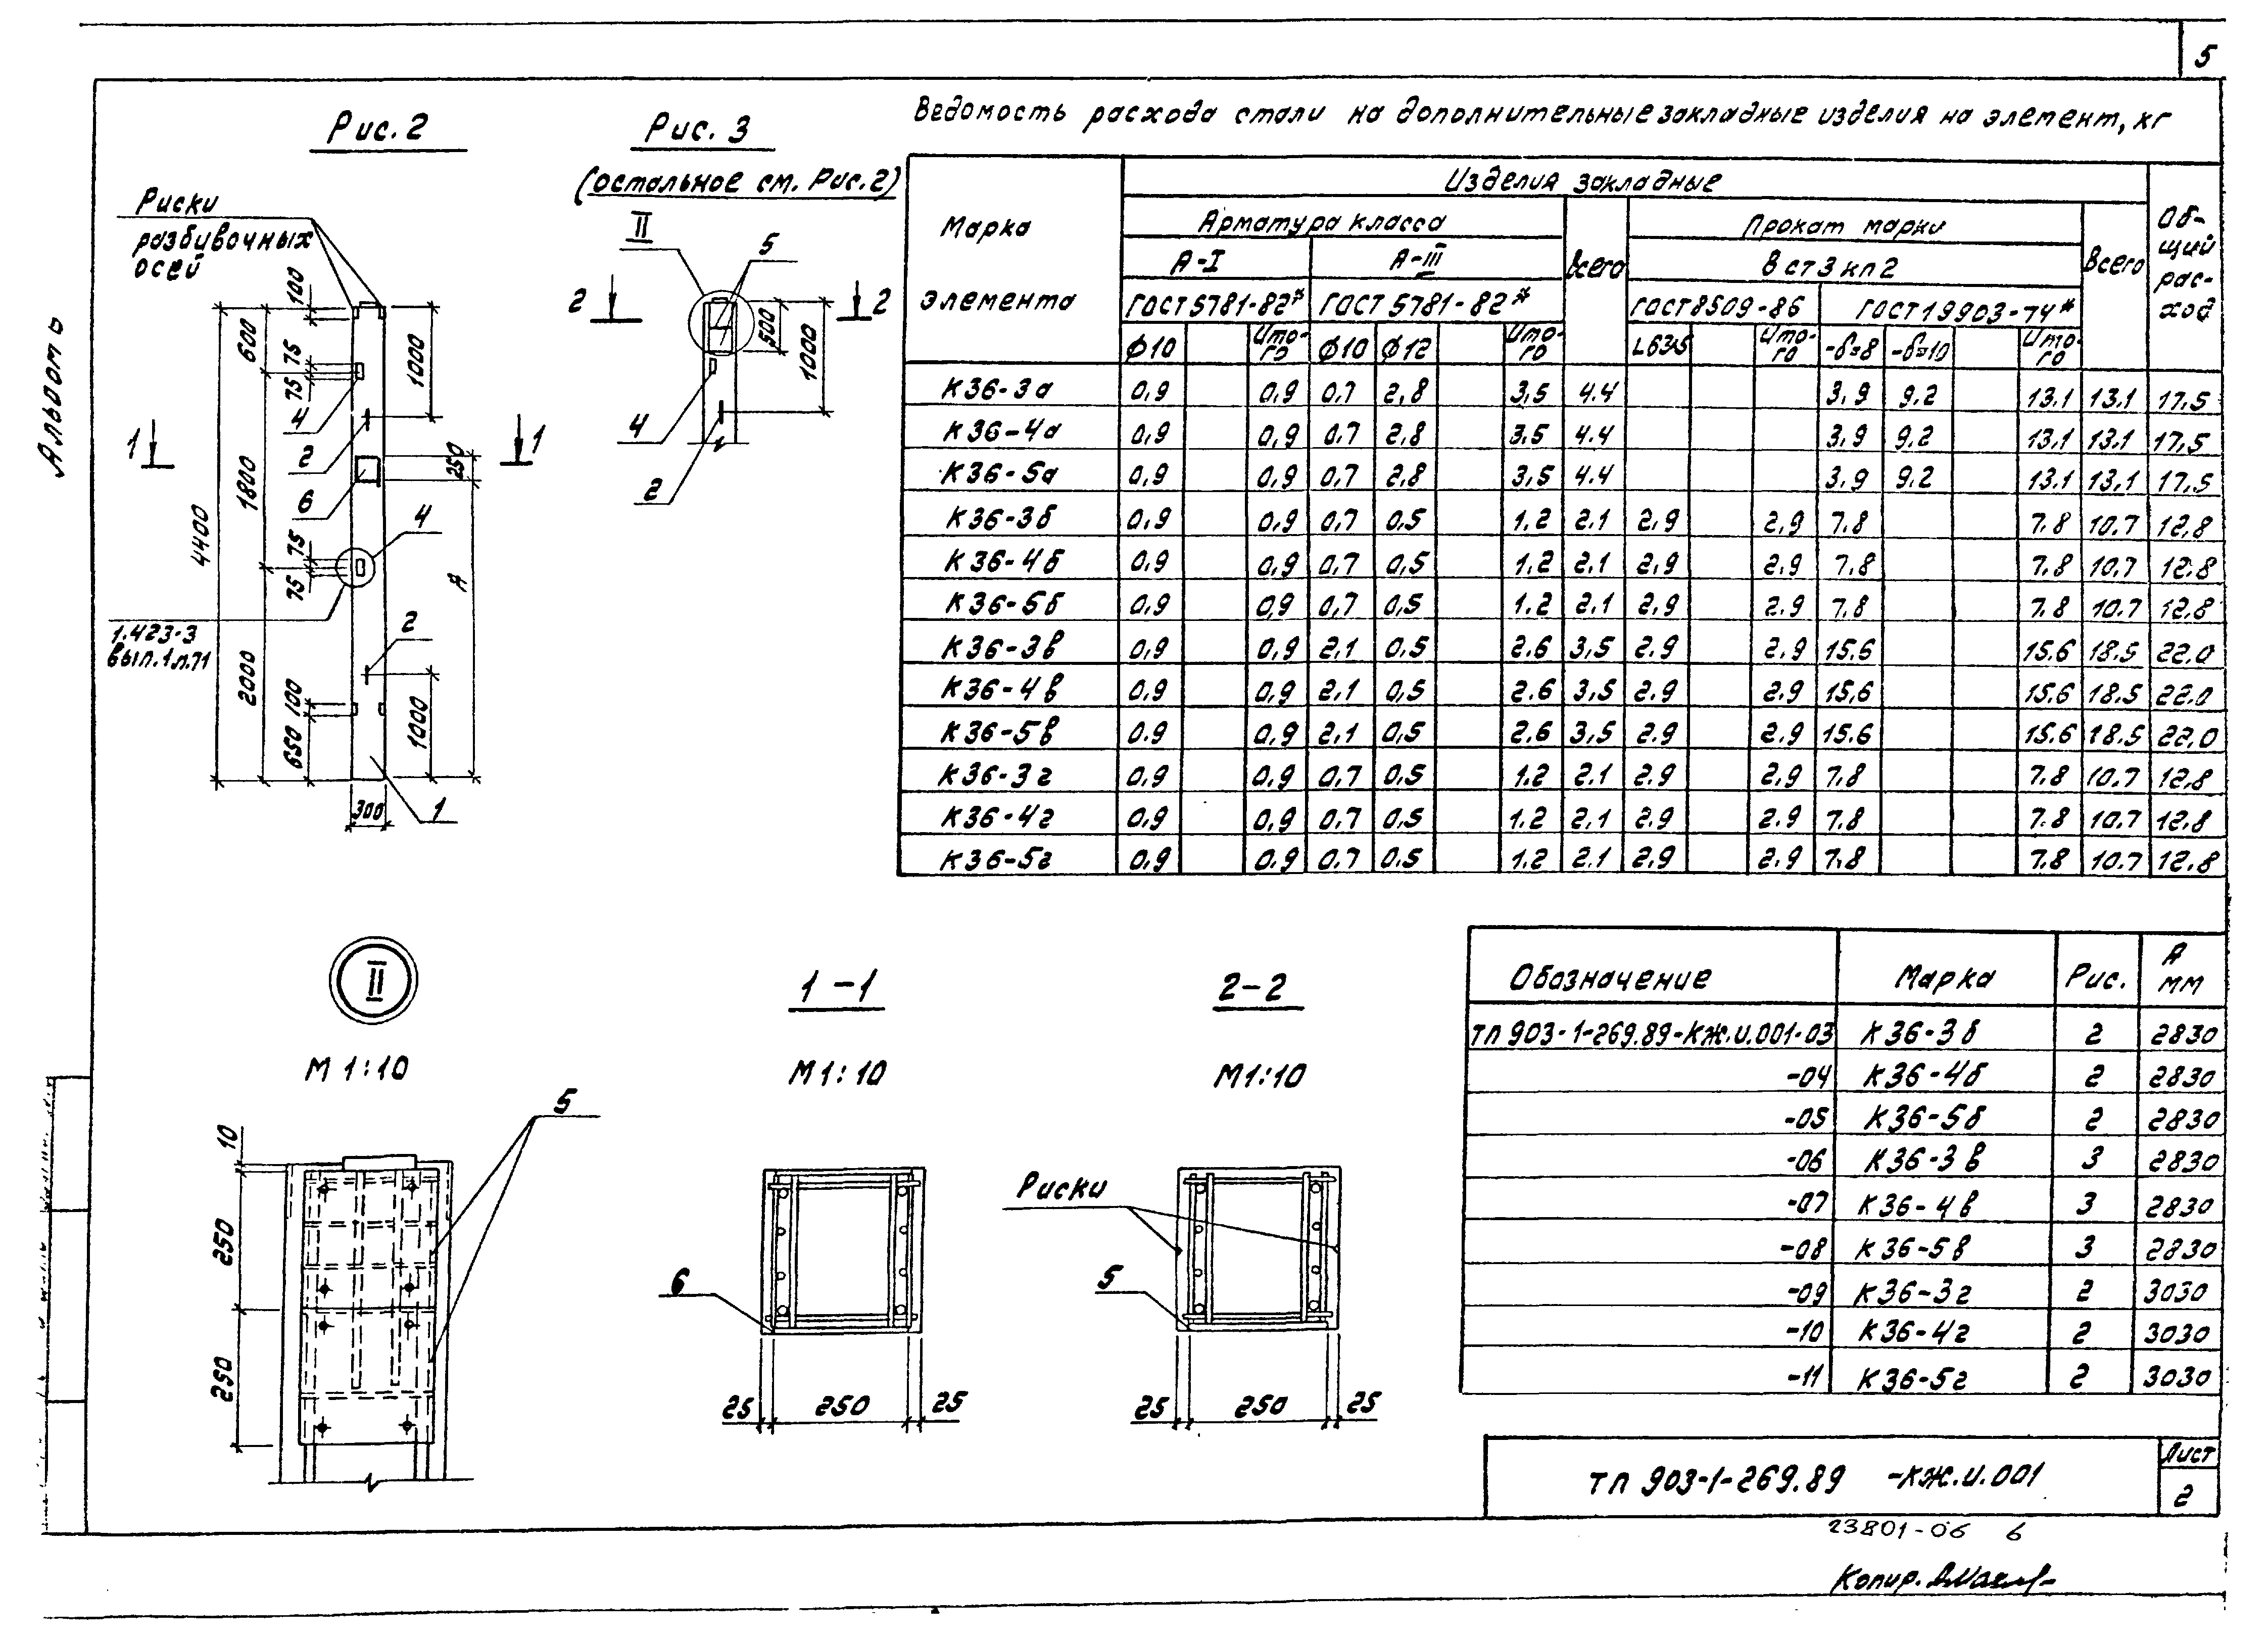 5
Альбом 6
Рис. 2
Рис. 3
(остальное см. Рис. 2)
Риски
разбивочных
осей
100
600
75
75
1000
4
2
6
1
1
250
1800
4400
4
75
75
А
1.423-3
вып. 1 л.71
2
2000
100
650
1000
300
1
II
5
2
2
500
1000
4
2
Ведомость расхода стали на дополнительные закладные изделия на элемент, кг
Марка элемента | Изделия закладные | Общий расход
Арматура класса | Всего | Прокат марки | Всего
А-I | А-III | Вст3кп2
ГОСТ 5781-82* | ГОСТ 5781-82* | ГОСТ 8509-86 | ГОСТ 19903-74*
ф10 | Итого | ф10 | ф12 | Итого | L63,5 | Итого | -δ=8 | -δ=10 | Итого
К36-3а 0,9 0,9 0,7 2,8 3,5 4.4 3,9 9.2 13.1 13.1 17.5
К36-4а 0,9 0,9 0,7 2.8 3.5 4.4 3.9 9.2 13.1 13.1 17.5
К36-5а 0,9 0,9 0,7 2.8 3,5 4.4 3.9 9.2 13.1 13.1 17.5
К36-3б 0,9 0,9 0,7 0,5 1.2 2.1 2,9 2.9 7.8 7.8 10.7 12,8
К36-4б 0,9 0,9 0,7 0,5 1.2 2.1 2.9 2.9 7.8 7.8 10.7 12.8
К36-5б 0,9 0,9 0,7 0,5 1.2 2.1 2.9 2.9 7.8 7.8 10.7 12.8
К36-3в 0,9 0,9 2.1 0,5 2.6 3,5 2.9 2.9 15.6 15.6 18.5 22.0
К36-4в 0,9 0,9 2.1 0,5 2.6 3,5 2.9 2.9 15,6 15.6 18.5 22.0
К36-5в 0.9 0,9 2.1 0,5 2.6 3,5 2.9 2.9 15.6 15.6 18.5 22.0
К36-3г 0,9 0,9 0,7 0,5 1.2 2.1 2.9 2.9 7.8 7.8 10.7 12.8
К36-4г 0,9 0,9 0,7 0,5 1.2 2.1 2.9 2.9 7.8 7.8 10.7 12.8
К36-5г 0,9 0,9 0,7 0,5 1.2 2.1 2.9 2.9 7.8 7.8 10.7 12.8
II
М 1:10
5
10
250
250
1-1
М 1:10
6
25 250 25
2-2
М 1:10
Риски
5
25 250 25
Обозначение Марка Рис. А мм
ТП 903-1-269.89-КЖ.И.001-03 К36-3б 2 2830
-04 К36-4б 2 2830
-05 К36-5б 2 2830
-06 К36-3в 3 2830
-07 К36-4в 3 2830
-08 К36-5в 3 2830
-09 К36-3г 2 3030
-10 К36-4г 2 3030
-11 К36-5г 2 3030
ТП 903-1-269.89 -КЖ.И.001
Лист
2
23801-06 6
Копир.